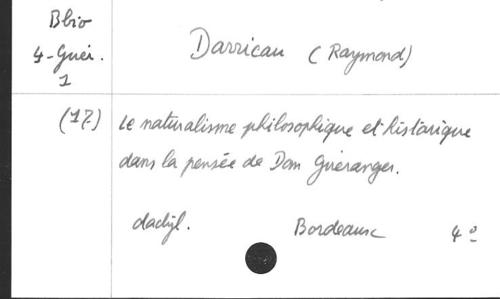 Bbio
4-Guér.
1
Darricau (Raymond)
(17.)
Le naturalisme philosophique et historique
dans la pensée de Dom Guéranger.
dactyl. Bordeaux 4°